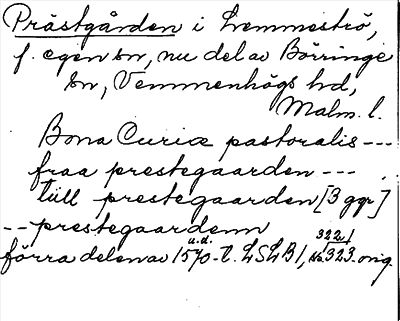 Prästgården i Lemmeströ,
f. egen sn, nu del av Börringe
sn, Vemmenhögs hd,
Malm. l.
Bona Curiæ pastoralis ---
fraa prestegaarden ---
tiill prestegaarden [3 ggr]
-- prestegaardenn
u.d. 322,1
förra delen av 1570-t. LSLB1, No 323. orig.